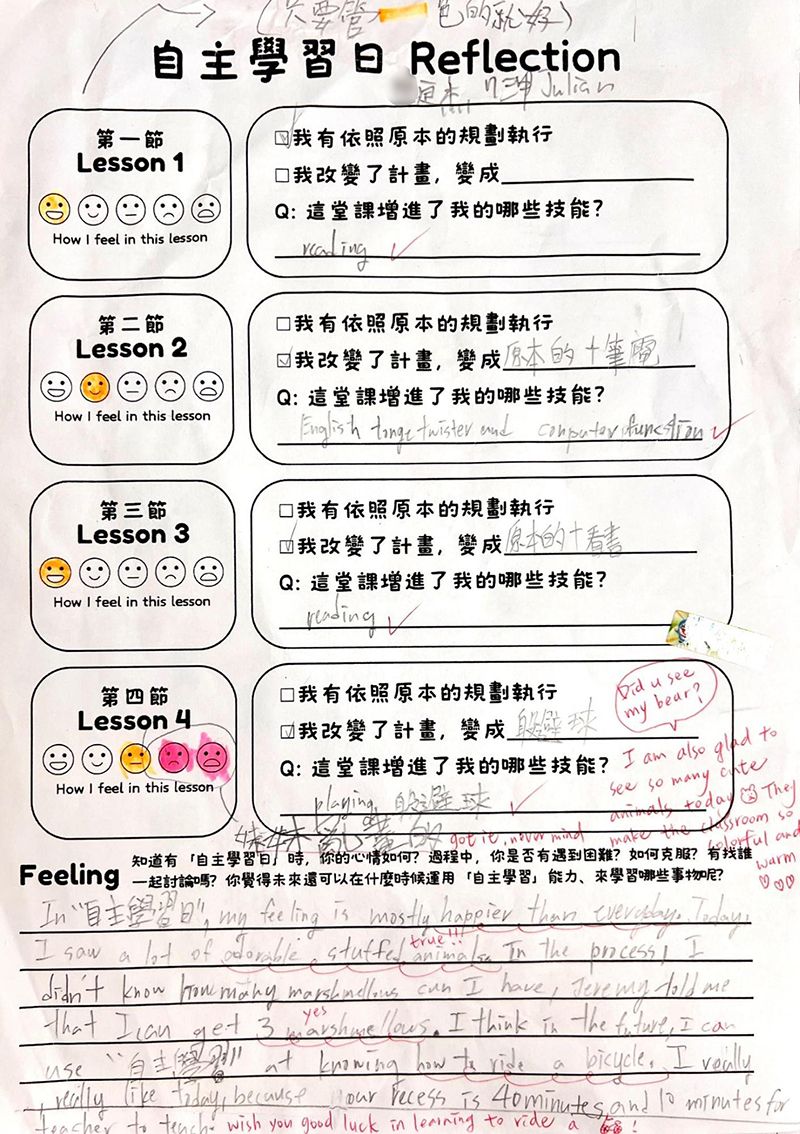 (只要管 色的就好)
自主學習日 Reflection
Julian
第一節
Lesson 1
How I feel in this lesson
我有依照原本的規劃執行
我改變了計畫，變成
Q: 這堂課增進了我的哪些技能?
reading
第二節
Lesson 2
How I feel in this lesson
我有依照原本的規劃執行
我改變了計畫，變成原本的+筆電
Q: 這堂課增進了我的哪些技能?
English tonge twister and computer function
第三節
Lesson 3
How I feel in this lesson
我有依照原本的規劃執行
我改變了計畫，變成原本的+看書
Q: 這堂課增進了我的哪些技能?
reading
第四節
Lesson 4
How I feel in this lesson
我有依照原本的規劃執行
我改變了計畫，變成 壁球
Q: 這堂課增進了我的哪些技能?
playing 壁球
Did u see
my bear?
I am also glad to
see so many cute
animals today They
make the classroom so
colorful and
warm
妹妹亂畫的
got it, never mind
Feeling
知道有「自主學習日」時，你的心情如何？過程中，你是否有遇到困難？如何克服？有找誰
一起討論嗎？你覺得未來還可以在什麼時候運用「自主學習」能力、來學習哪些事物呢？
In "自主學習日", my feeling is mostly happier than everyday. Today,
I saw a lot of adorable stuffed animals. In the process, I
true!!!
didn't know how many marshmellows can I have, Jeremy told me
that I can get 3 marshmellows. I think in the future, I can
yes
use "自主學習" at knowing how to ride a bicycle. I really
, really like today, because your recess is 40 minutes, and 10 minutes for
teacher to teach. wish you good luck in learning to ride a !